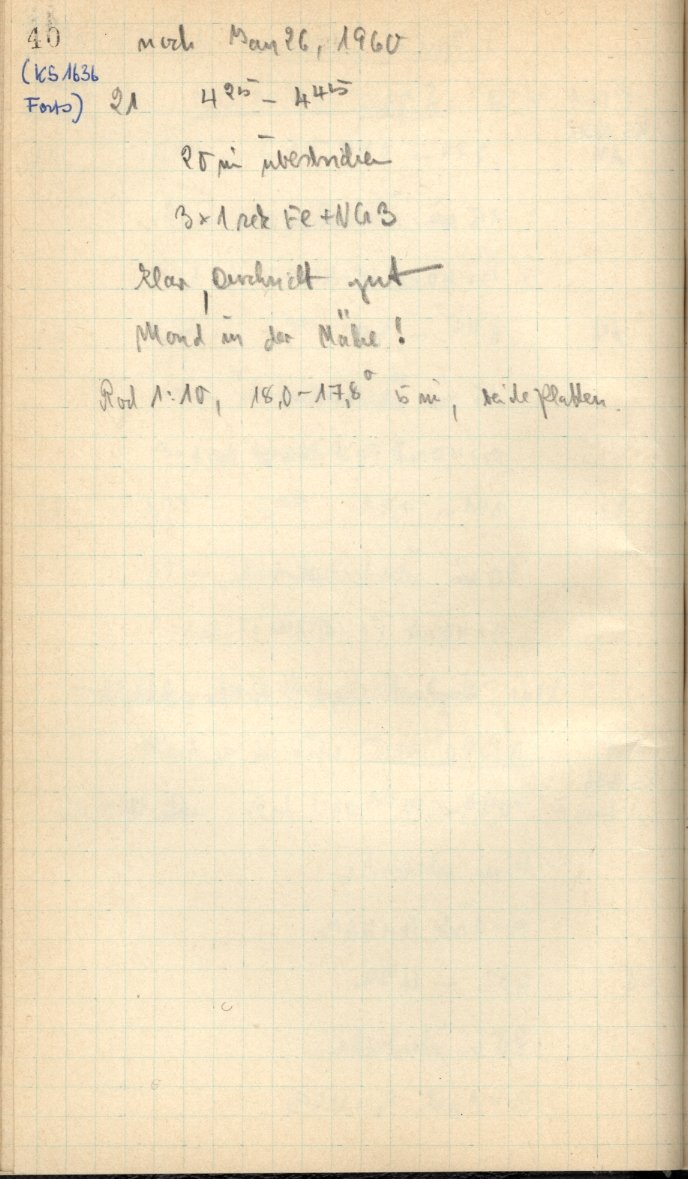 40 noch Jan 26, 1960
(KS 1636
Forts) 21 4 25 - 4 45
20 min überstrichen
3 x 1 sek Fe + NG 3
klar, Durchsicht gut
Mond in der Nähe!
Rod 1:10, 18,0 - 17,8° 5 min, beide Platten.